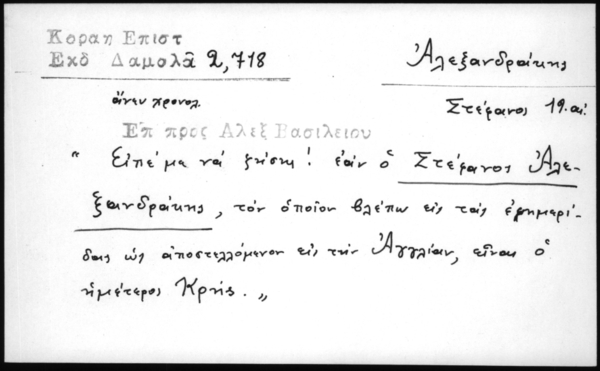 Κοραῆ Επιστ
Εκδ Δαμαλᾶ 2,718
Ἀλεξανδράκης
ἄνευ χρονολ.
Στέφανος 19. αἰ.
Ἐπ προς Αλεξ Βασιλειου
" Εἰπέ με νά ζήσῃς! ἐάν ὁ Στέφανος Ἀλε-
ξανδράκης, τόν ὁποῖον βλέπω εἰς τάς ἐφημερί-
δας ὡς ἀποστελλόμενον εἰς τήν Ἀγγλίαν, εἶναι ὁ
ἡμέτερος Κρής. „